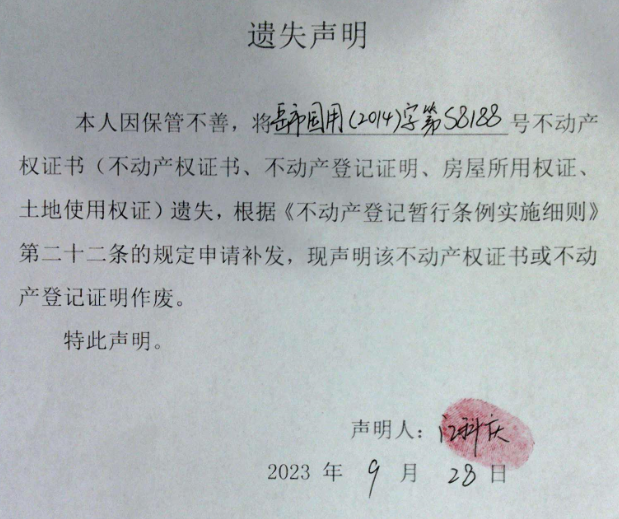 遗失声明
本人因保管不善，将岳市国用(2014)字第S8188号不动产
权证书（不动产权证书、不动产登记证明、房屋所用权证、
土地使用权证）遗失，根据《不动产登记暂行条例实施细则》
第二十二条的规定申请补发，现声明该不动产权证书或不动
产登记证明作废。
特此声明。
声明人：江科庆
2023 年 9 月 28 日